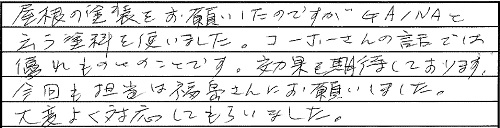 屋根の塗装をお願いしたのですがGAINAと
云う塗料を使いました。コーホーさんの話では
優れものとのことです。効果を期待しております。
今回も担当は福島さんにお願いしました。
大変よく対応してもらいました。